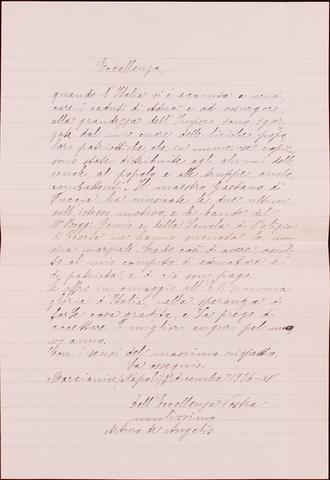 Eccellenza,
quando l'Italia si è accinta a vendi,
care i caduti di Adua e ad assurgere
alla grandezza dell'Impero sono sgor,
gate dal mio cuore delle liriche popo,
lari patriottiche, che, in numerose copie,
sono state distribuite agli alunni delle
scuole, al popolo e alle truppe, anche
combattenti. Il maestro Gaetano di
ha musicate le due ultime,
sull'istesso motivo, e le bande del
10° Regg. Genio e della Scuola di Polizia
di Caserta ne hanno suonata la
marziale. Credo così di avere assol,
to al mio compito di educatore e
di patriota, e di ciò son pago.
Le offro in omaggio all'E. V.
gloria d'Italia, nella speranza di
farle cosa gradita, e La prego di
accettare i migliori auguri pel nuo,
vo anno.
Con i sensi del massimo rispetto
La ossequio.
Marcianise (Napoli) dicembre 1936-XV
Dell'Eccellenza Vostra
umilissimo
Arturo de Angelis